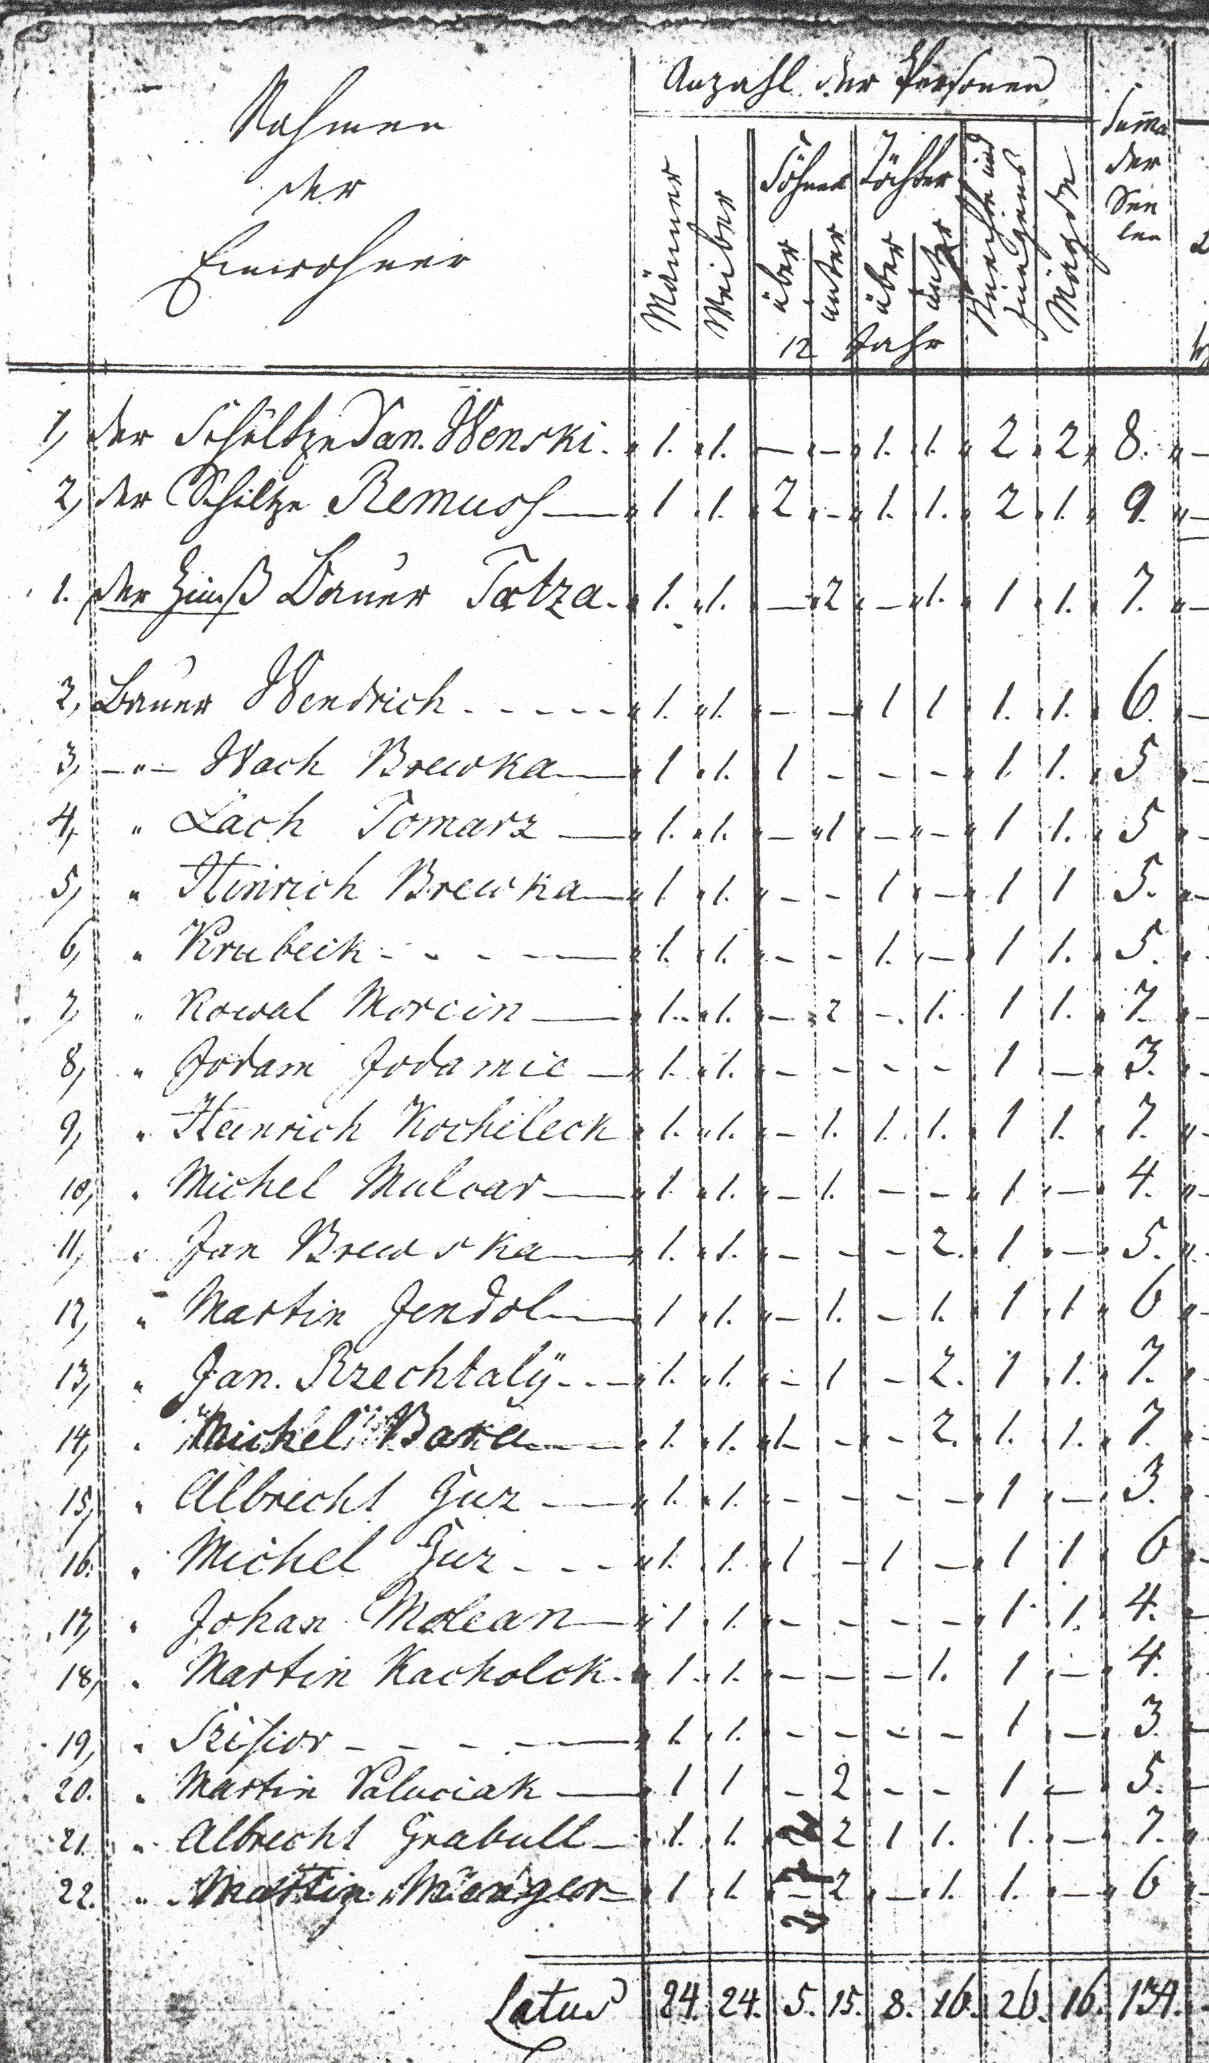 Nahmen
der
Einwohner
Anzahl der Personen
Männer
Weiber
Söhne
über
unter
Töchter
über
unter
12 Jahr
Knechte und
Jungens
Mägde
Summa
der
See
len
1, der Schultze Dan. Wenski 1. 1. — — 1. 1. 2 2 8.
2, der Schultze Remuss 1 1. 2 — 1. 1. 2 1. 9.
1. der Zinß Bauer Tatza 1. 1. — 2 — 1. 1 1. 7.
2, Bauer Wendrich 1. 1. — — 1 1 1. 1. 6.
3, — " — Wach Brewka 1 1. 1 — — — 1. 1. 5
4, " Lach Tomarz 1. 1. — 1 — — 1 1. 5
5, " Hinrich Brewka 1 1. — — 1 — 1 1 5.
6, " Krubeck 1. 1. — — 1. — 1 1. 5.
7, " Kowal Morcin 1. 1. — 2 — 1. 1 1. 7.
8, " Jodam Jodamie 1. 1. — — — — 1 — 3.
9, " Heinrich Kocheleck 1. 1. — 1. 1. 1. 1 1. 7.
10, " Michel Mulcar 1. 1. — 1. — — 1 — 4.
11, " Jan Brewska 1. 1. — — — 2. 1 — 5.
12, " Martin Jendol 1 1. — 1. — 1. 1 1 6
13, " Jan. Rzechtalÿ 1. 1. — 1 — 2. 1 1. 7.
14, " Michel Bara 1. 1. 1 — — 2. 1. 1. 7.
15, " Albrecht Guz 1. 1. — — — — 1 — 3.
16. " Michel Guz 1. 1. 1 — 1 — 1 1 6
17, " Johan Molean 1 1. — — — — 1 1. 4.
18, " Martin Kacholck 1. 1. — — — 1. 1 — 4.
19, " 1. 1. — — — — 1 — 3
20. " Martin Paluciak 1 1 — 2 — — 1 — 5.
21. " Albrecht Grabull 1. 1. — 2 1 1. 1. — 7.
22. " Martin Menger 1 1. — 2 — 1. 1. — 6
Latus 24. 24. 5. 15. 8. 16. 26. 16. 134.